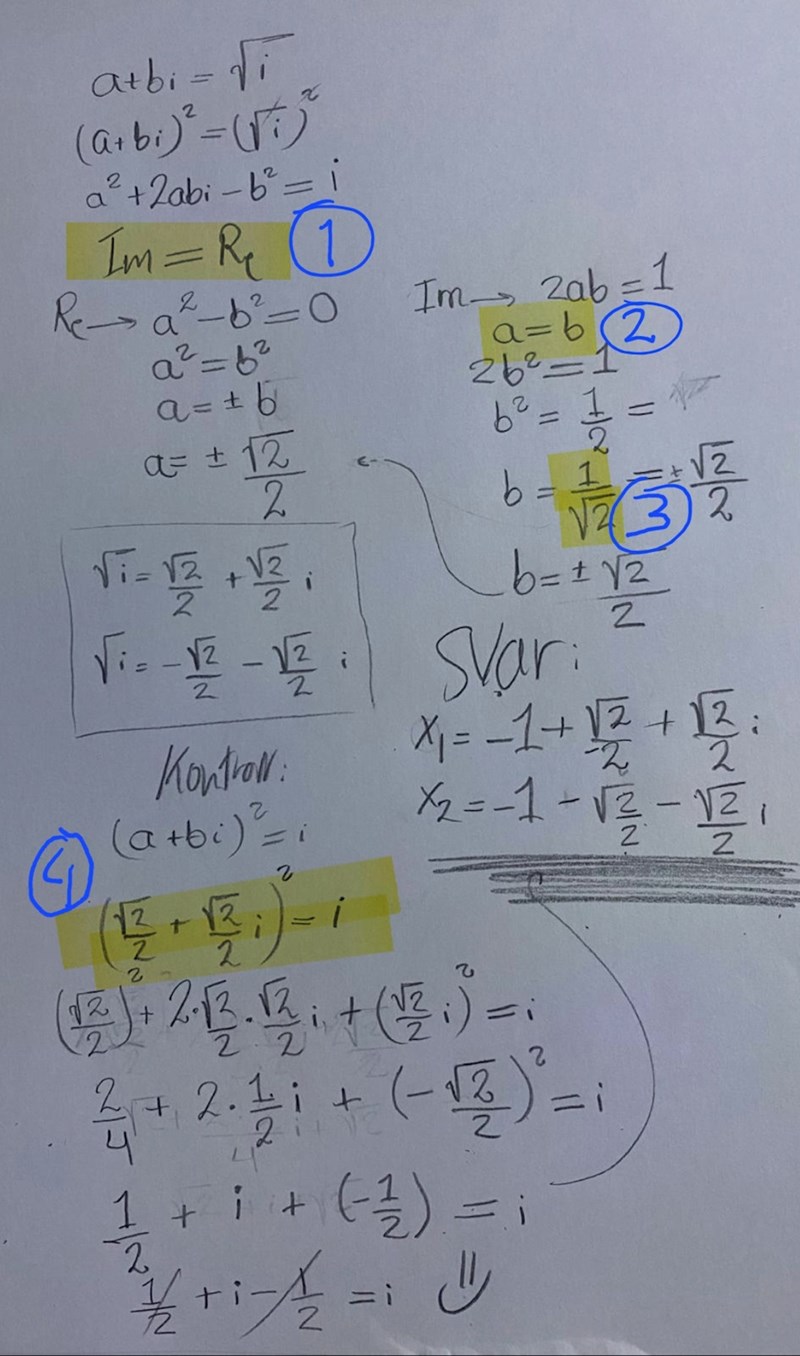 a+bi = √i
(a+bi)² = (√i)²
a² + 2abi − b² = i
Im = Re ①
Re → a² − b² = 0
a² = b²
a = ± b
a = ± √2/2
Im → 2ab = 1
a = b ②
2b² = 1
b² = 1/2 =
b = 1/√2 = ± √2/2 ③
b = ± √2/2
√i = √2/2 + √2/2 i
√i = −√2/2 − √2/2 i
Svar:
x₁ = −1 + √2/2 + √2/2 i
x₂ = −1 − √2/2 − √2/2 i
Kontroll:
(a+bi)² = i
④ (√2/2 + √2/2 i)² = i
(√2/2)² + 2·√2/2·√2/2 i + (√2/2 i)² = i
2/4 + 2·1/2 i + (−√2/2)² = i
1/2 + i + (−1/2) = i
1/2 + i − 1/2 = i